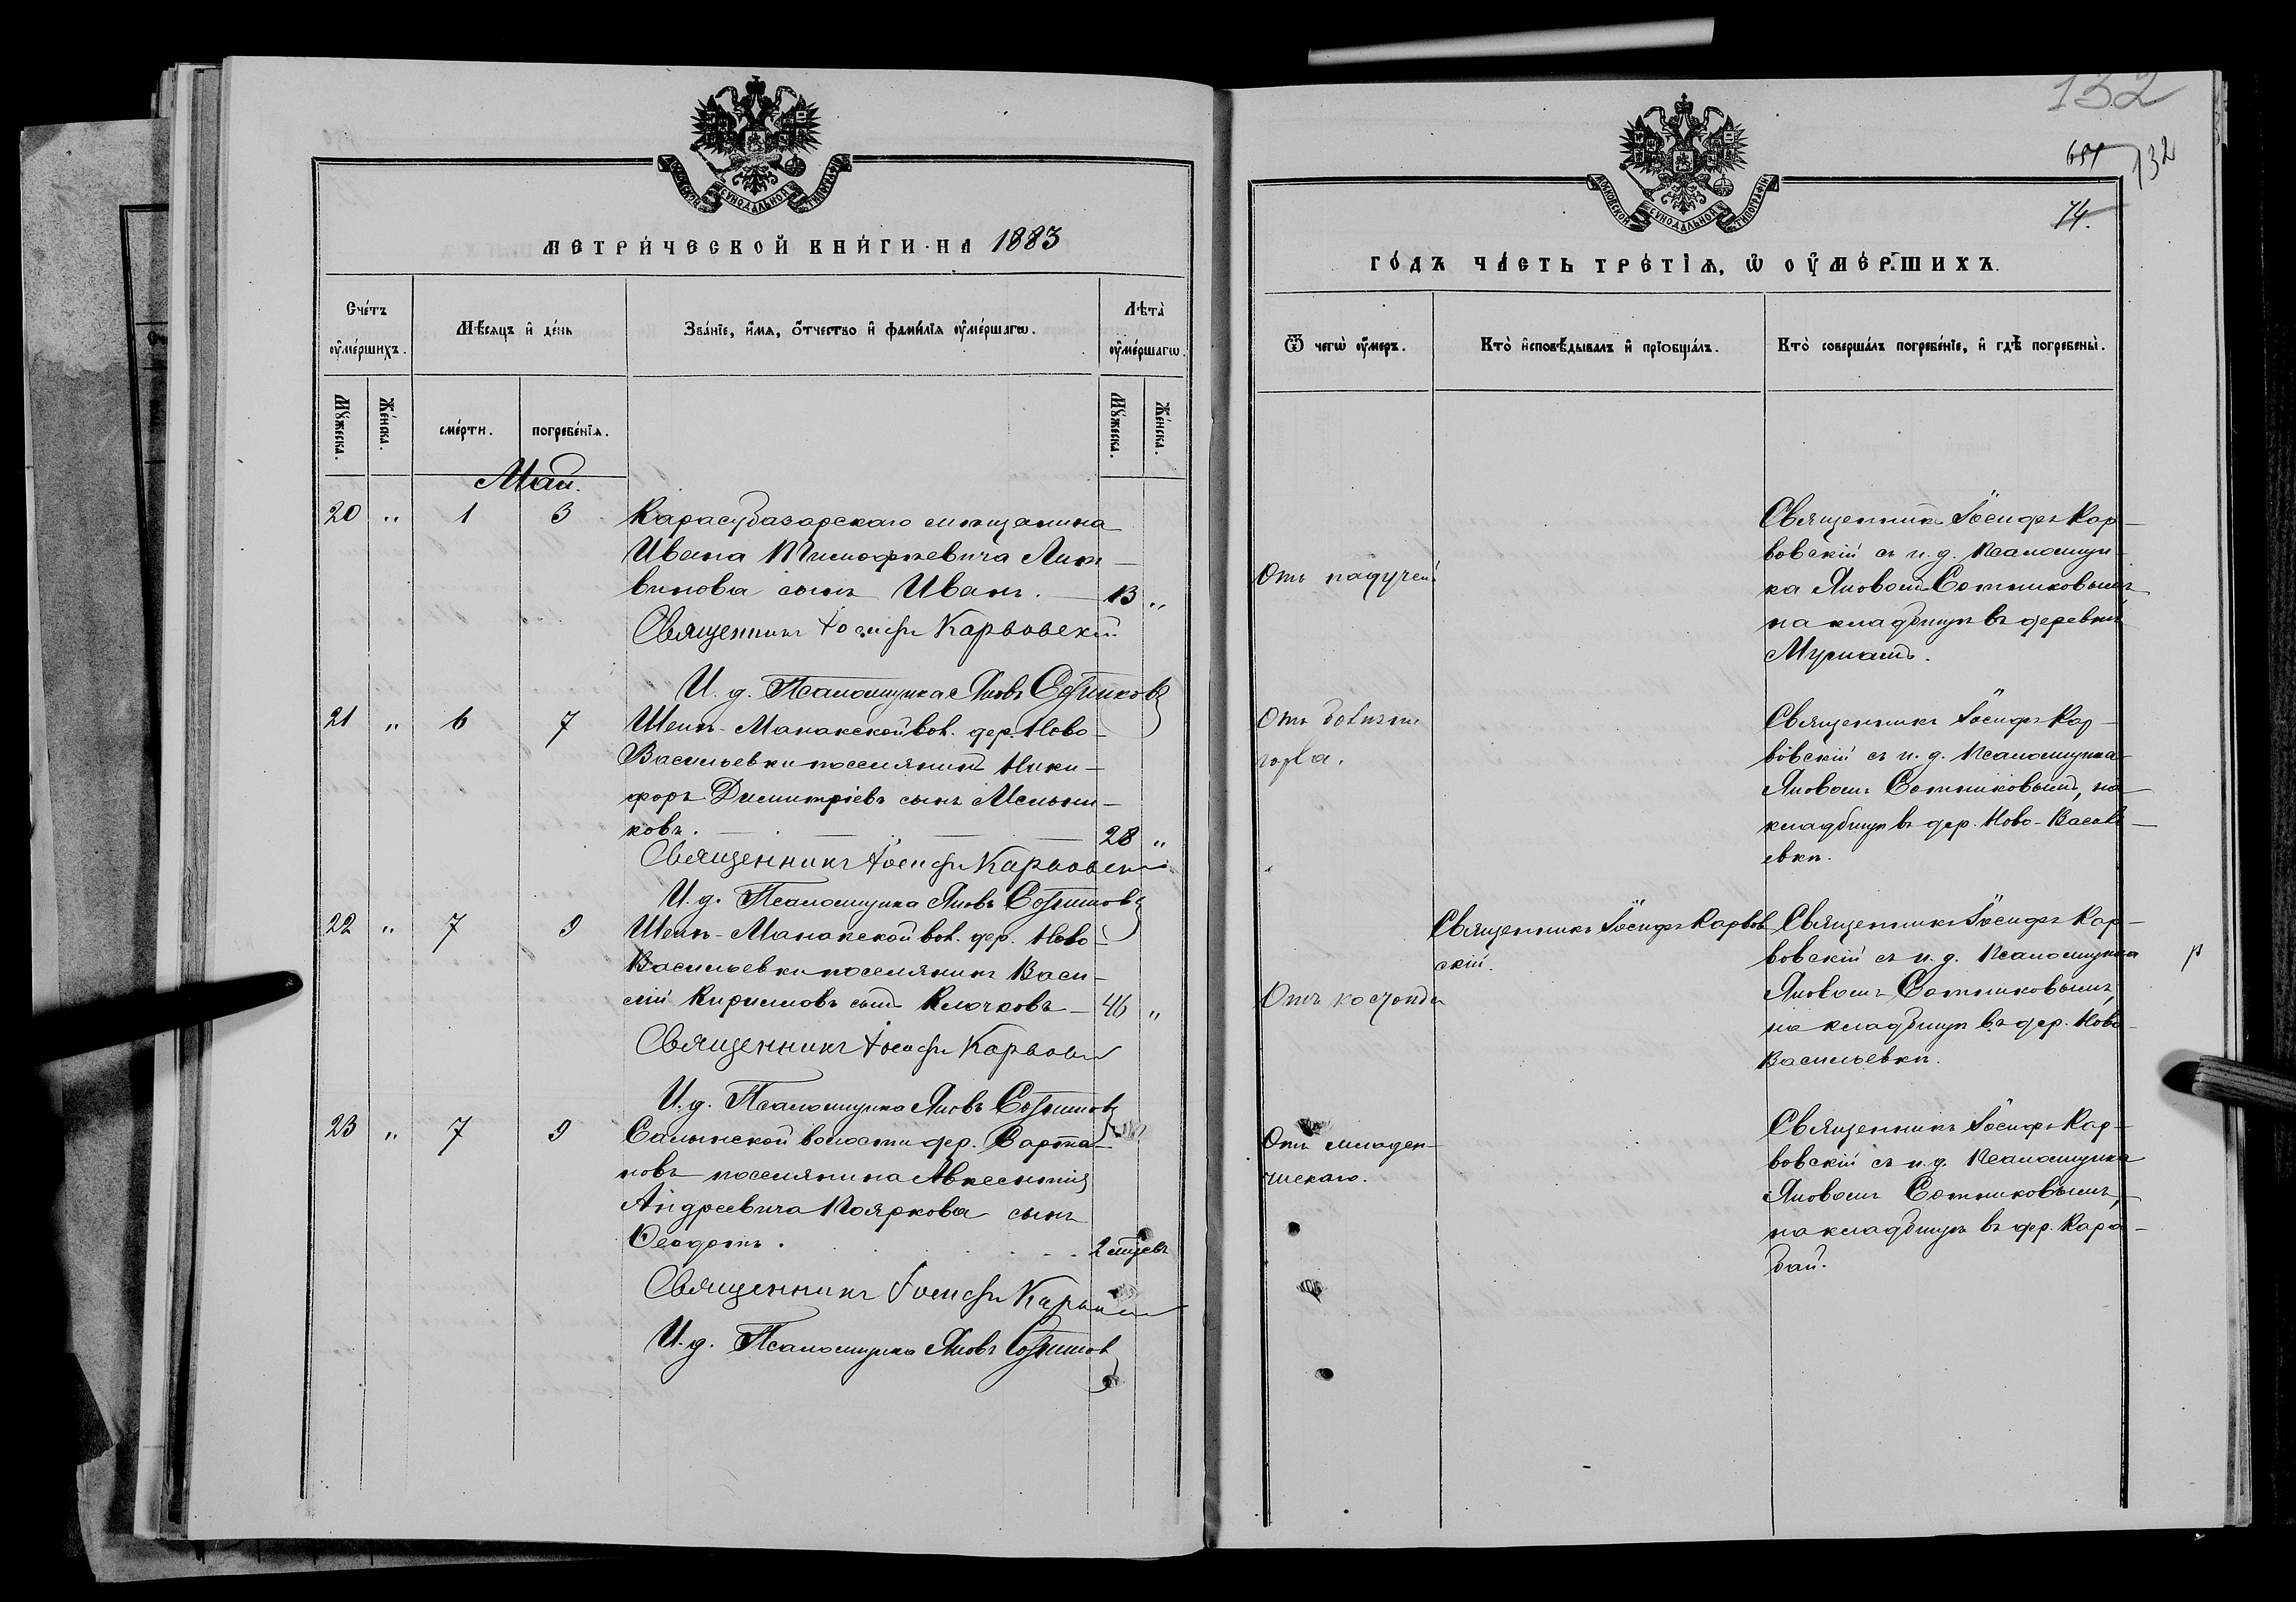 МОСКОВСКОЙ СУНОДАЛЬНОЙ ТИПОГРАФІИ
МЕТРИ́ЧЕСКОЙ КНИ́ГИ НА 1883
Сче́тъ ѹ҆ме́ршихъ.
Мѣ́сяцъ и҆ де́нь
Зва́нїе, и҆́мѧ, ѻ҆́тчество и҆ фами́лїѧ ѹ҆ме́ршагѡ.
Лѣта̀ ѹ҆ме́ршагѡ.
Мꙋ́жеска.
Же́нска.
сме́рти.
погребе́нїѧ.
Мꙋ́жеска.
Же́нска.
Май.
20 " 1 3
Карасубазарскаго мѣщанина
Ивана Тимофѣевича Лит-
винова сынъ Иванъ. 13 "
Священникъ Іосифъ Карвовскій
И. д. Псаломщика Яковъ Сотниковъ
21 " 6 7
Шеих-Манакской вол. дер. Ново-
Васильевки поселянинъ Ники-
форъ Димитріевъ сынъ Мельни-
ковъ. 28 "
Священникъ Іосифъ Карвовскій
И. д. Псаломщика Яковъ Сотниковъ
22 " 7 9
Шеих-Манакской вол. дер. Ново-
Васильевки поселянинъ Васи-
лій Кирилловъ сынъ Клочковъ 46 "
Священникъ Іосифъ Карвовскій
И. д. Псаломщика Яковъ Сотниковъ
23 " 7 9
Салынской волости дер.
поселянина Авксентія
Андреевича Пояркова сынъ
Ѳеодотъ. 2 мѣс
Священникъ Іосифъ Карвовскій
И. д. Псаломщика Яковъ Сотниковъ
132
651 132
74.
МОСКОВСКОЙ СУНОДАЛЬНОЙ ТИПОГРАФІИ
ГО́ДЪ ЧА́СТЬ ТРЕ́ТІѦ, Ѡ҆ ОУ҆МЕ́РШИХЪ.
Ѿ чегѡ̀ ѹ҆́меръ.
Кто̀ и҆сповѣ́дывалъ и҆ прїѡбща́лъ.
Кто̀ соверша́лъ погребе́нїе, и҆ гдѣ̀ погребены̀.
Отъ падучей
Священникъ Іосифъ Кар-
вовскій съ и. д. Псаломщи-
ка Яковомъ Сотниковымъ
на кладбищѣ въ деревнѣ
Отъ болѣзни
горла.
Священникъ Іосифъ Кар-
вовскій съ и. д. Псаломщика
Яковомъ Сотниковымъ, на
кладбищѣ въ дер. Ново-Василь-
евкѣ.
Отъ
Священникъ Іосифъ Карвов-
скій.
Священникъ Іосифъ Кар-
вовскій съ и. д. Псаломщика
Яковомъ Сотниковымъ,
на кладбищѣ въ дер. Ново-
Васильевкѣ.
Отъ младен-
ческаго.
Священникъ Іосифъ Кар-
вовскій съ и. д. Псаломщика
Яковомъ Сотниковымъ,
на кладбищѣ въ дер. Кара-
бай.